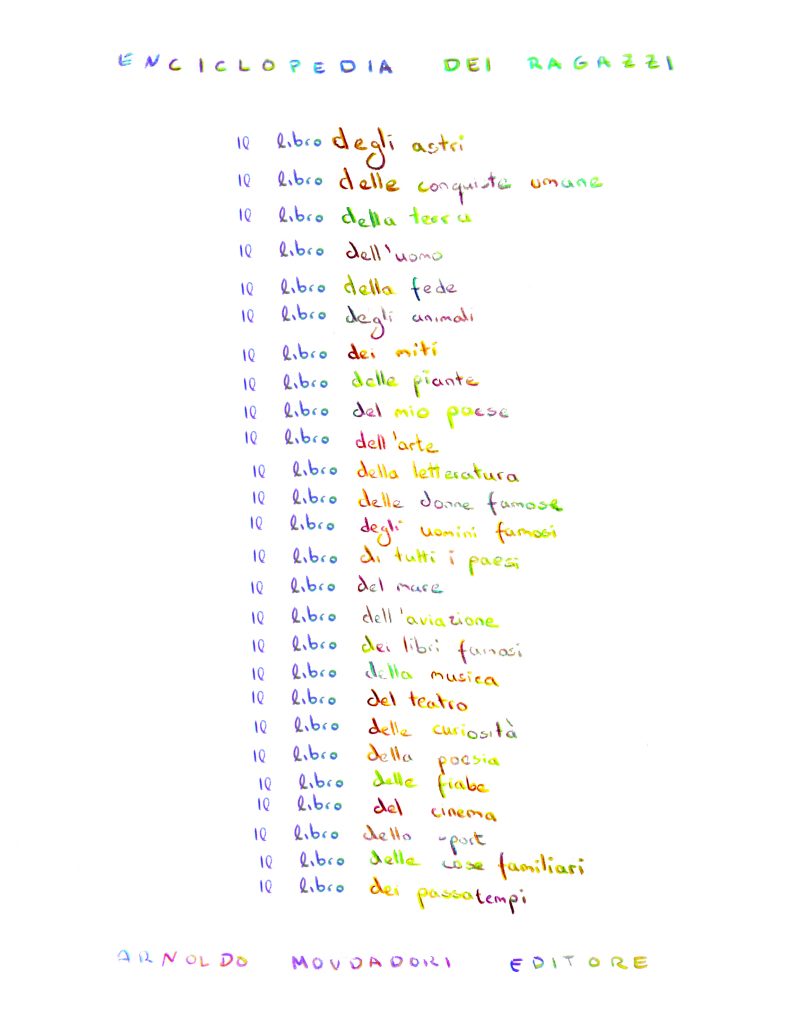 ENCICLOPEDIA DEI RAGAZZI
Il libro degli astri
Il libro delle conquiste umane
Il libro della terra
Il libro dell'uomo
Il libro della fede
Il libro degli animali
Il libro dei miti
Il libro delle piante
Il libro del mio paese
Il libro dell'arte
Il libro della letteratura
Il libro delle donne famose
Il libro degli uomini famosi
Il libro di tutti i paesi
Il libro del mare
Il libro dell'aviazione
Il libro dei libri famosi
Il libro della musica
Il libro del teatro
Il libro delle curiosità
Il libro della poesia
Il libro delle fiabe
Il libro del cinema
Il libro dello sport
Il libro delle cose familiari
Il libro dei passatempi
ARNOLDO MONDADORI EDITORE